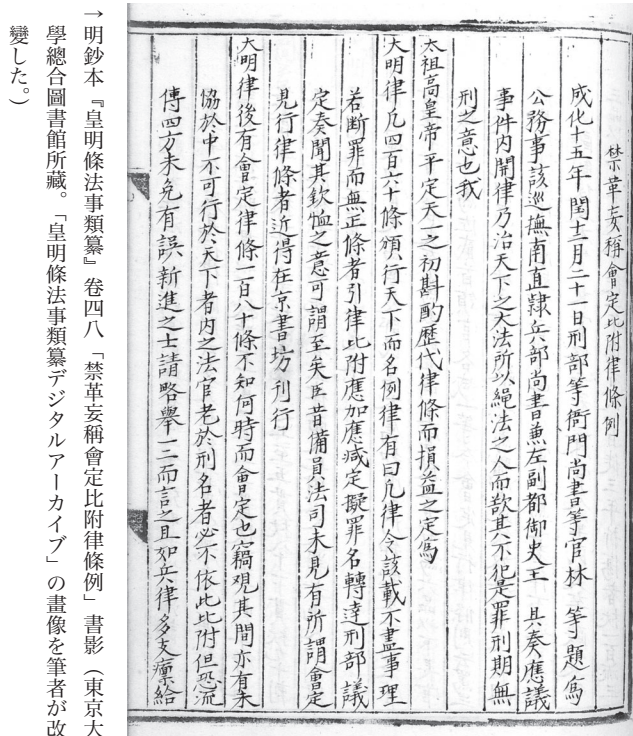 禁革妄稱會定比附律條例
成化十五年閏十月二十一日刑部等衙門尚書等官林 等題爲
公務事該巡撫南直隷兵部尚書兼左副都御史王 具奏應議
事件内開律乃治天下之大法所以繩法之人而欲其不犯是罪刑期無
刑之意也我
太祖高皇帝平定天下之初斟酌歷代律條而損益之定爲
大明律凡四百六十條頒行天下而名例律有曰凡律令該載不盡事理
若斷罪而無正條者引律比附應加應减定擬罪名轉達刑部議
定奏聞其欽恤之意可謂至矣臣昔備員法司未見有所謂會定
見行律條者近得在京書坊刊行
大明律後有會定律條一百八十條不知何時而會定也竊观其間亦有未
協於中不可行於天下者内之法官老於刑名者必不依此比附但恐流
傳四方未免有誤新進之士請略舉一二而言之且如兵律多支廪給
→明鈔本『皇明條法事類纂』卷四八「禁革妄稱會定比附律條例」書影(東京大
學總合圖書館所藏。「皇明條法事類纂デジタルアーカイブ」の畫像を筆者が改
變した。)